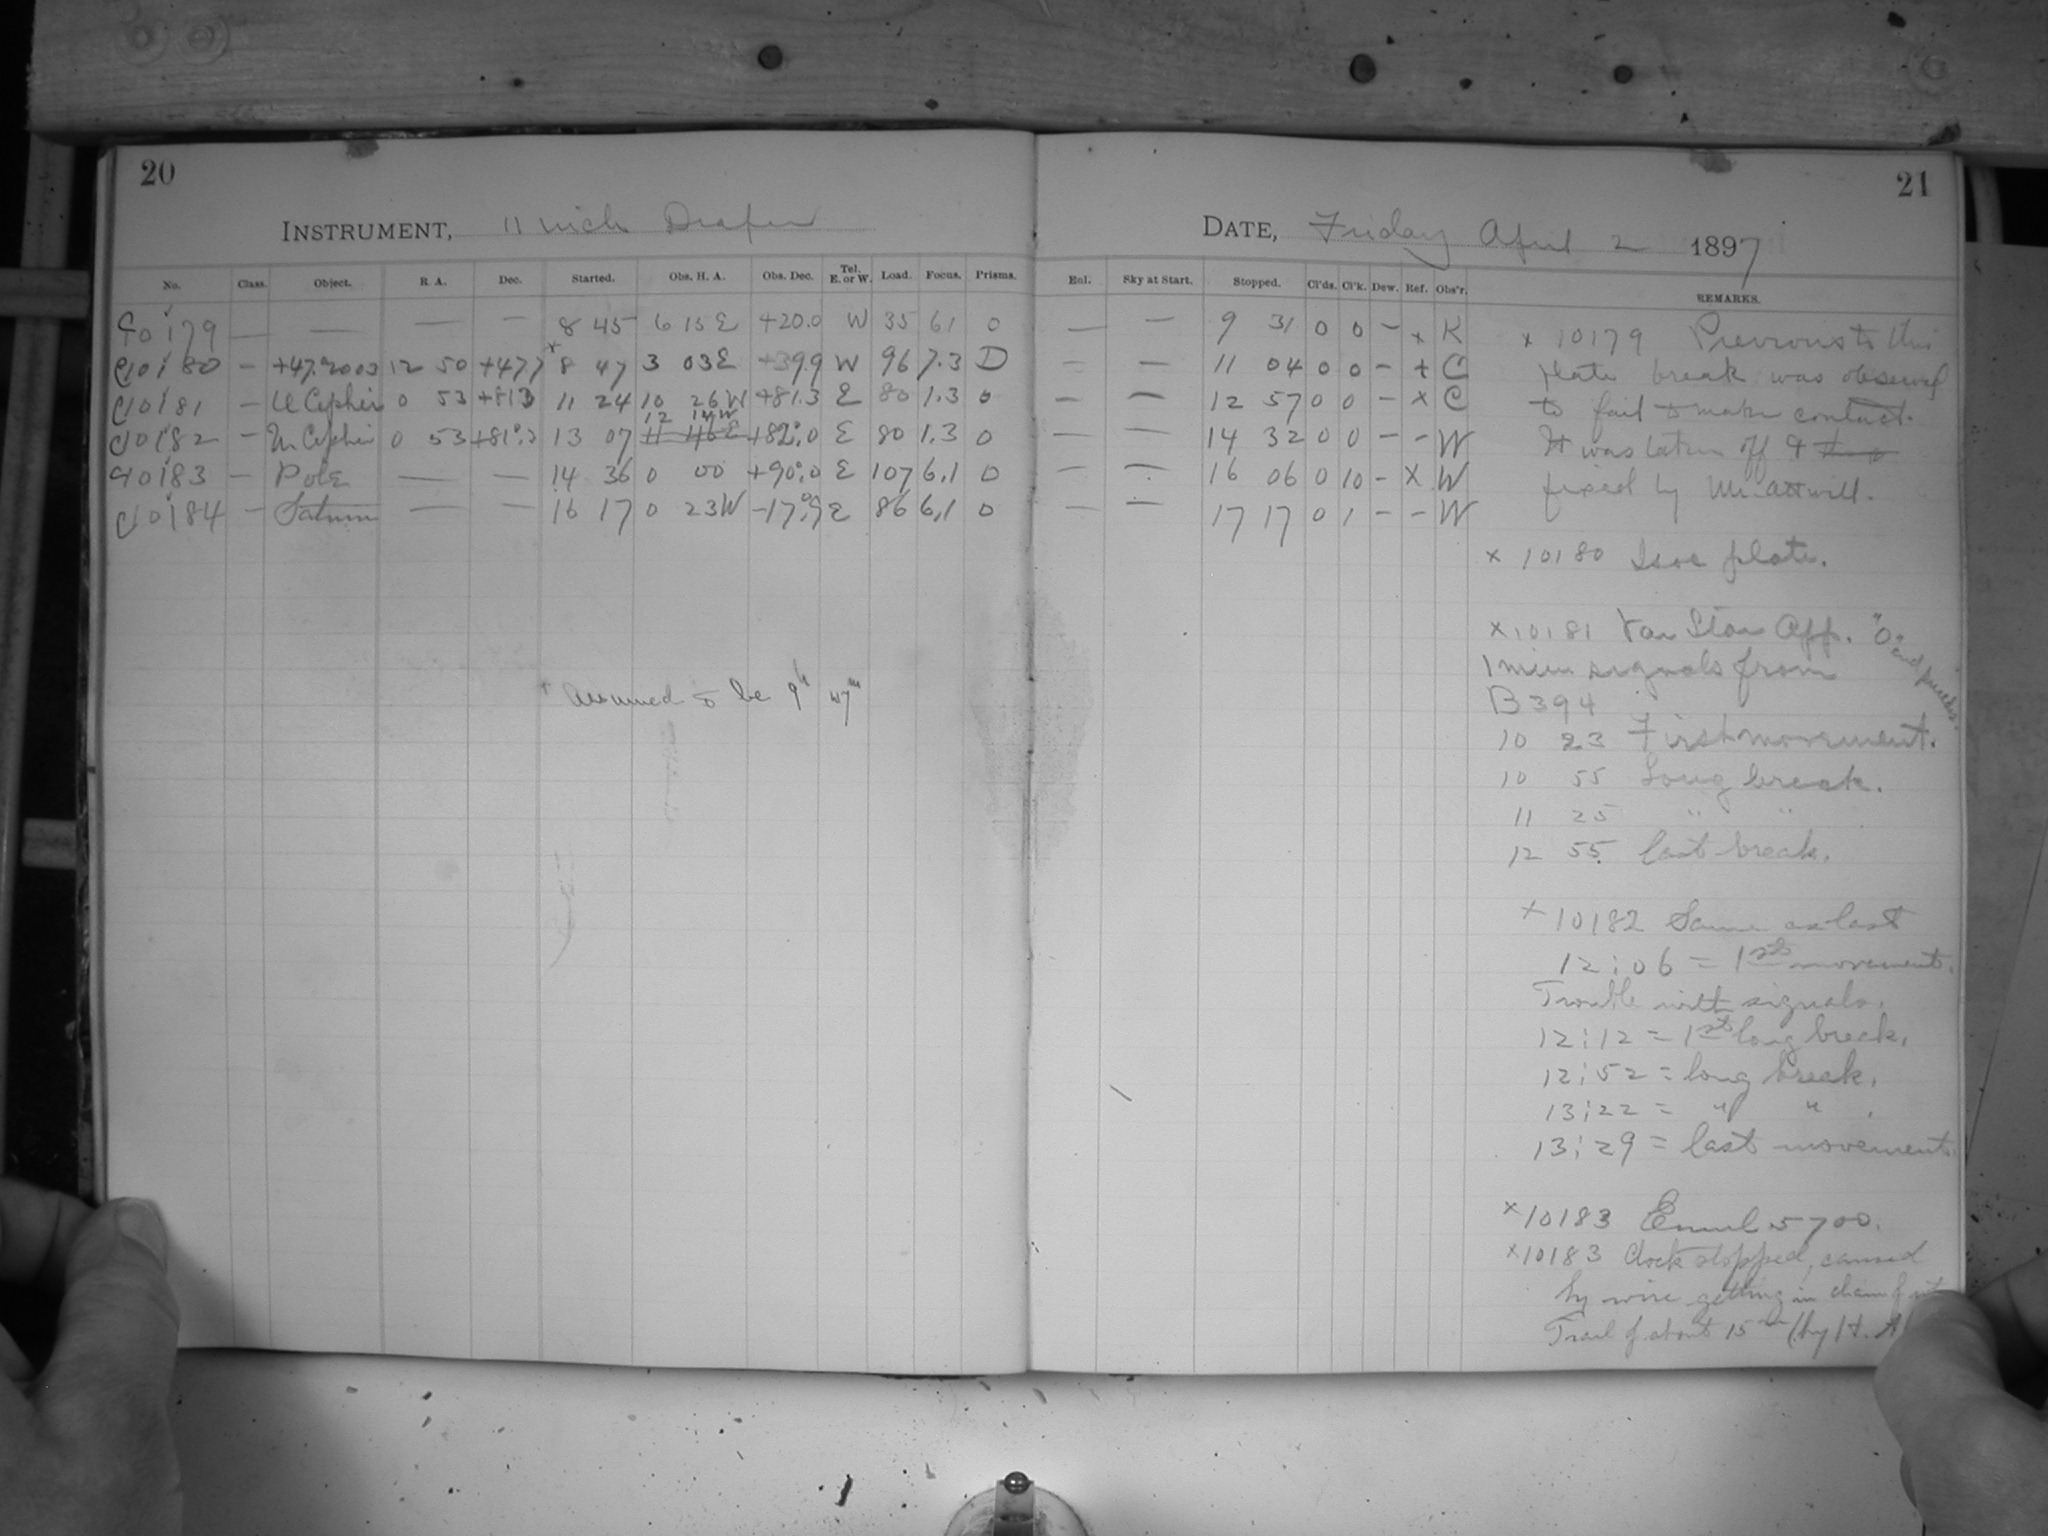 20
INSTRUMENT, 11 inch Draper
No. Class. Object. R. A. Dec. Started. Obs. H. A. Obs. Dec. Tel. E. or W. Load. Focus. Prisms.
C10179 — — — — 8 45 6 15 E +20.0 W 35 61 0
C10180 — +47.°2003 12 50 +47.7 x8 47 3 03 E +39.9 W 96 7.3 D
C10181 — U Cephei 0 53 +81.3 11 24 10 26 W +81.3 E 80 1.3 0
12 14 W
C10182 — U Cephei 0 53 +81°.3 13 07 11 46 E +82°.0 E 80 1.3 0
C10183 — Pole — — 14 36 0 00 +90°.0 E 107 6.1 0
C10184 — Saturn — — 16 17 0 23 W -17°.9 E 86 6.1 0
+ Assumed to be 9h 47m
21
DATE, Friday April 2 1897
Enl. Sky at Start. Stopped. Cl'ds. Cl'k. Dew. Ref. Obs'r. REMARKS.
— — 9 31 0 0 – x K
— — 11 04 0 0 – + C
— — 12 57 0 0 – x C
— — 14 32 0 0 – – W
— — 16 06 0 10 – X W
— — 17 17 0 1 – – W
x 10179 Previous to this
plate break was observed
to fail to make contact.
It was taken off &
fixed by Mr. Attwill.
x 10180 Isoc plate.
x 10181 Var Star App. "O" and
1 min signals from
B 394
10 23 First movement.
10 55 Long break.
11 25 " "
12 55. last break.
x 10182 Same as last
12:06 = 1st movement.
Trouble with signals.
12:12 = 1st long break.
12:52 = long break.
13:22 = " " .
13:29 = last movement.
x 10183 Emul 5700.
x 10183 Clock stopped, caused
by wire getting in chain of
Trail of about 15m (by H. A